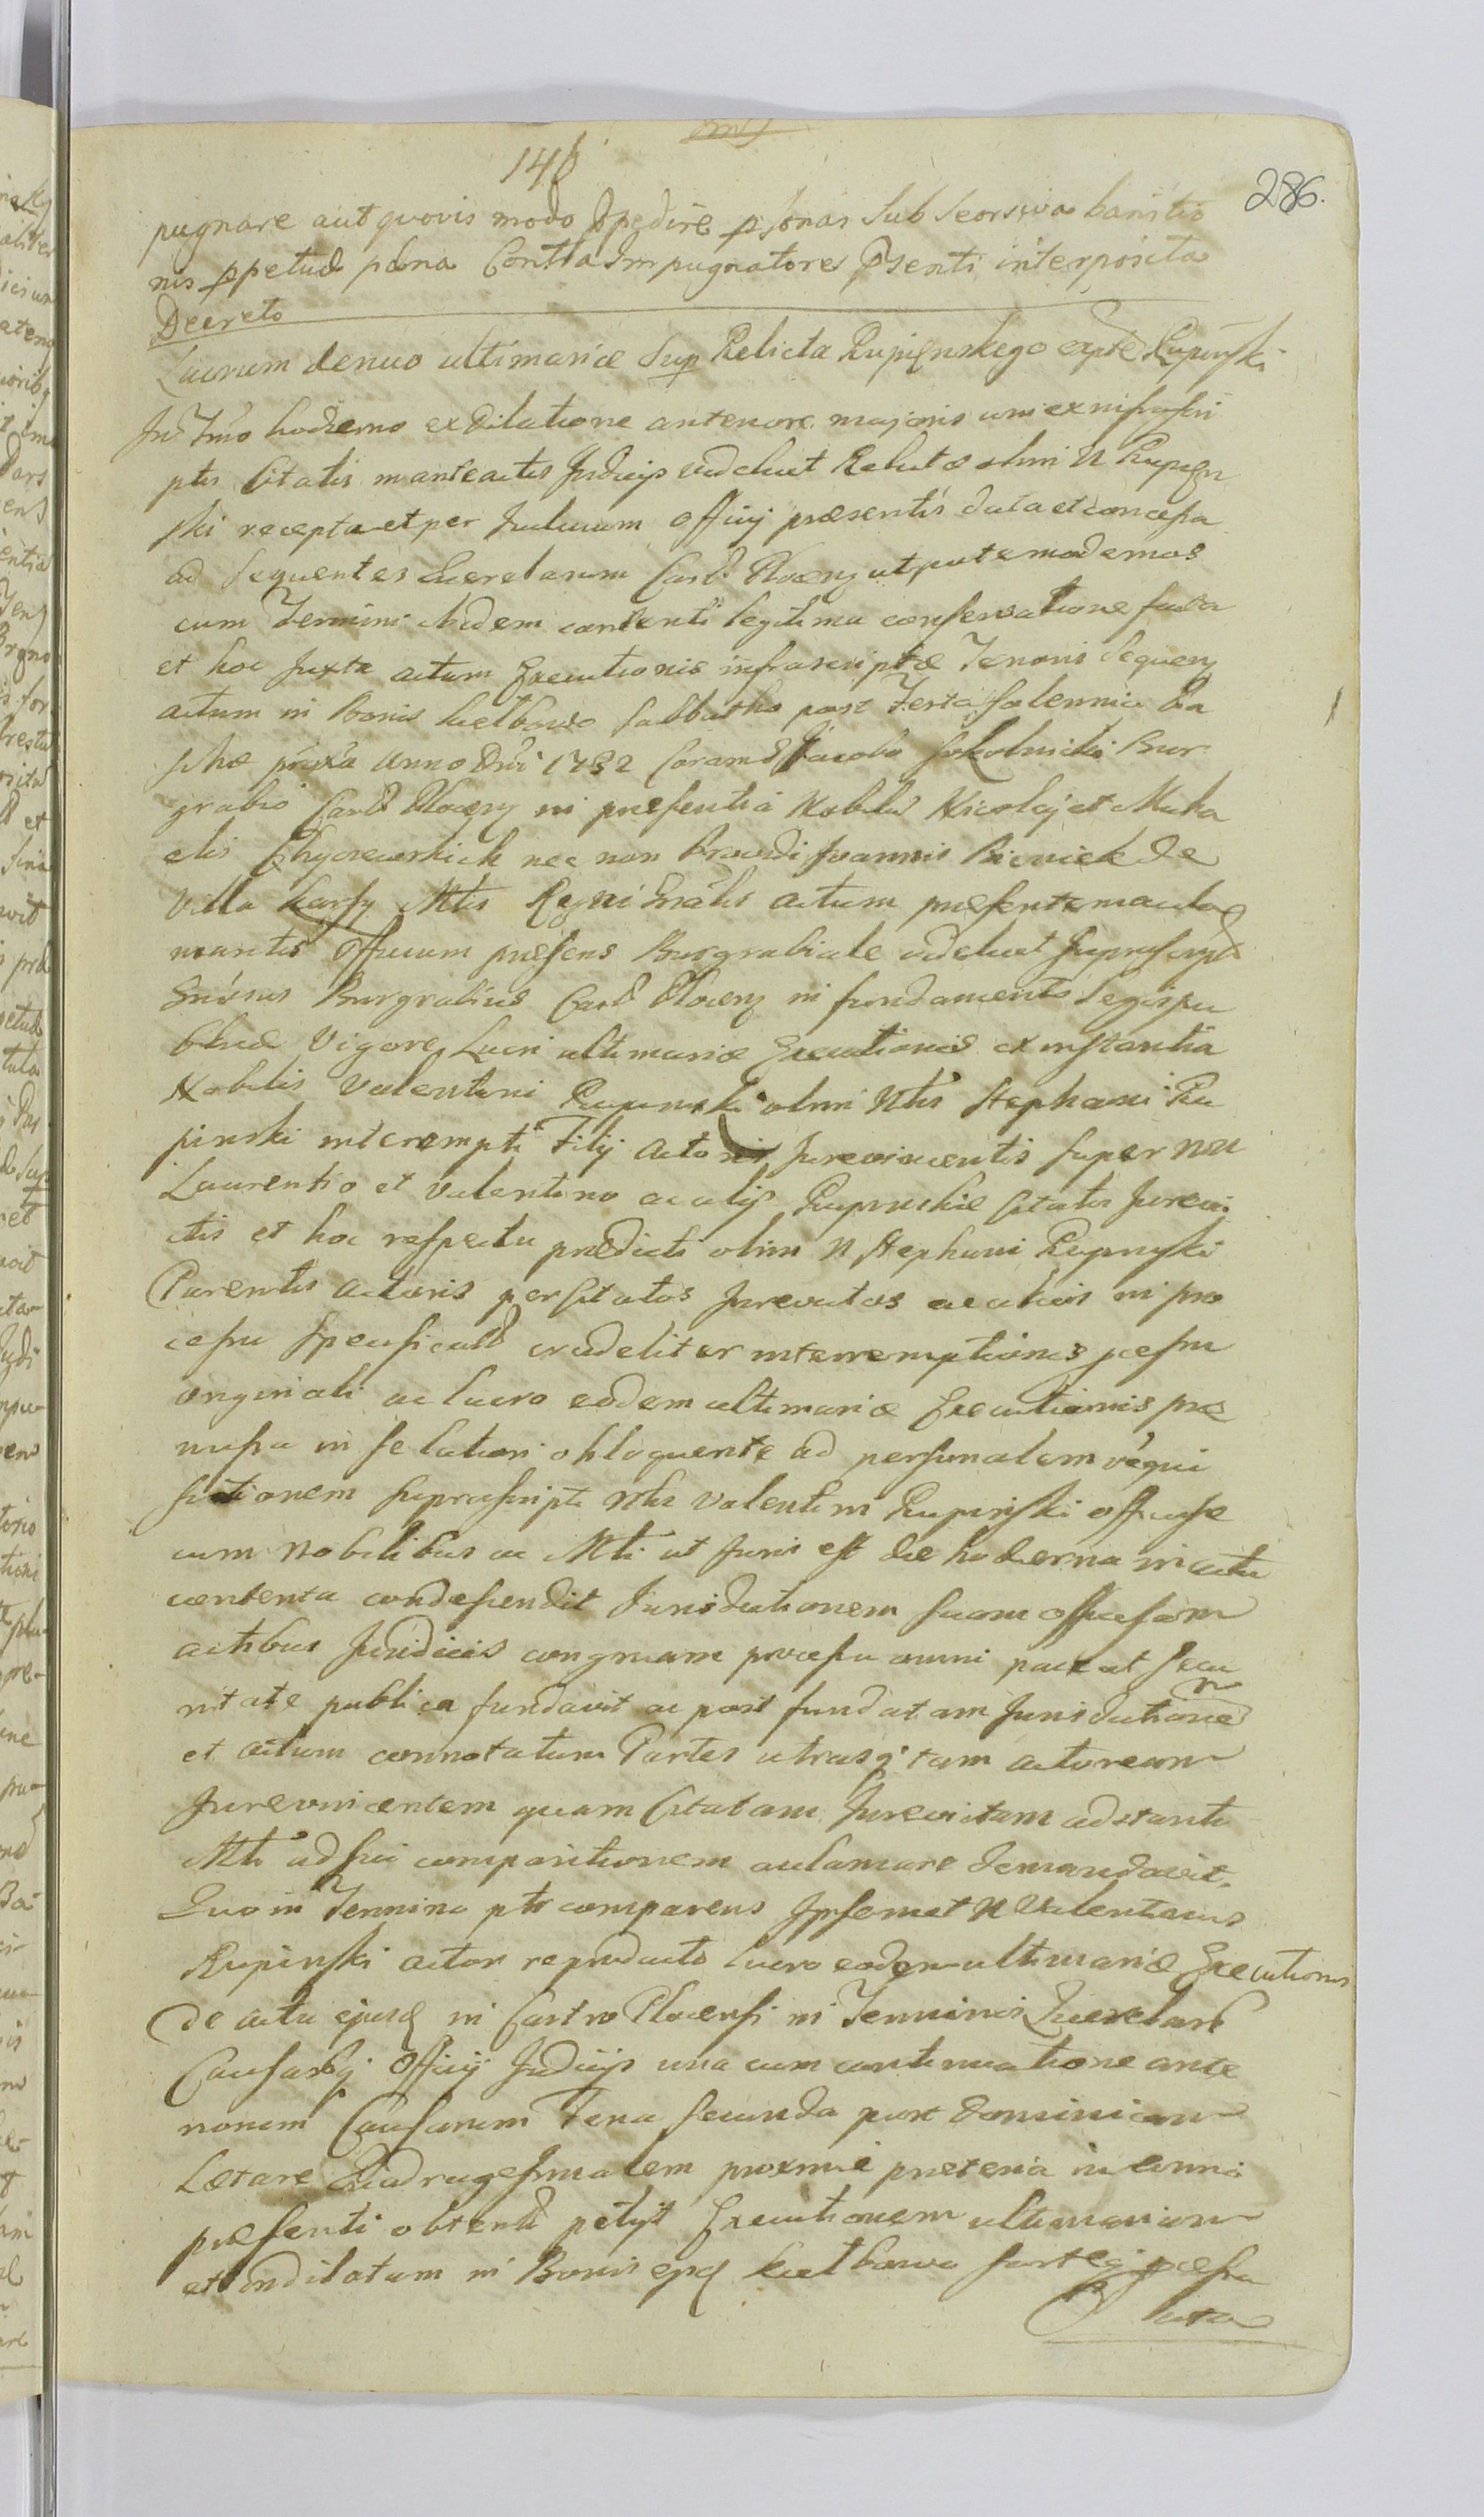 148
286.
pugnare aut quovis modo impedire psonas sub seorsiva banitio
nis ppetuæ pæna Contra Impugnatores psenti interposita
Decreto
Lucrum denuo ultimariæ Sup Relicta Rupięnskego expte Rupinski
In Tmo hodierno ex dilatione anteriore majoris uni ex infrascri
ptis Citatis in anteactis Judicijs videlicet Relictæ olim N Rupięn
ski recepta et per Judicium officij præsentis data et concessa
ad sequentes Querelarum Cast Plocen utpote modernos
cum Termini ibidem contenti legitima conservatione facta
et hoc Juxta actum Executionis infrascriptæ Tenoris Sequen
actum in Bonis Kiełbowo Sabbatho post Festa solennia Pa
schæ proxa Anno Dni 1732 Coram Jacobo Sokolnicki Bur
grabio Cast Plocen in præsentia Nobiliu Nicolaj et Micha
elis nec non Providi Joannis de
Villa Karsy Mtis Regni Gnalis actum præsentem aucla
mantis officium præsens Burgrabiale videlicet suprascript
Gnosus Burgrabius Cast Plocen in fundamento Legis pu
blicæ Vigore Lucri ultimariæ Executionis ex instantia
Nobilis Valentini Rupinski olim Nlis Stephani Ru
pinski interempti Filij Actoris Jurevincentis super NN
Laurentio et Valentino ac alijs Rupinskie Citatis Jurevi
ctis et hoc respectu prædicti olim N Stephani Rupinski
Parentis Actoris per Citatos Jurevictos ac alios in pro
cessu specificat crudeliter interremptionis pcessu
originali ac lucro eodem ultimariæ Executionis præ
missa in se latiori obloquente ad personalem requi
sitionem suprascripti Nlis Valentini Rupinski officiose
cum Nobilibus ac Mtli ut Juris est die hodierna in actu
contenta condescendit Jurisdictionem suam officiosam
actibus Juridicis congruam processu omni pace et secu
ritate publica fundavit ac post fundatam Jurisdictione
et actum connotatum Partes utrasq tam actoream
Jurevincentem quam Citatam Jurevictam adstanti
Mtli ad sui comparitionem aclamare demandavit.
Quo in Termino ptr comparens Ipsemet N Valentinus
Rupinski actor reproducto lucro eodem ultimariæ Executionis
De actu ejusd in Castro Plocensi in Terminis Querelar
Causarq Officij Judicijs una cum continuatione ante
riorum Causarum Feria secunda post Dominicam
Lætare Quadragesimalem proxime præterita in anno
præsenti obtent petijt Executionem ultimariam
et Condilatam in Bonis ejusd Kiełbowo sorteq pcessu
lata